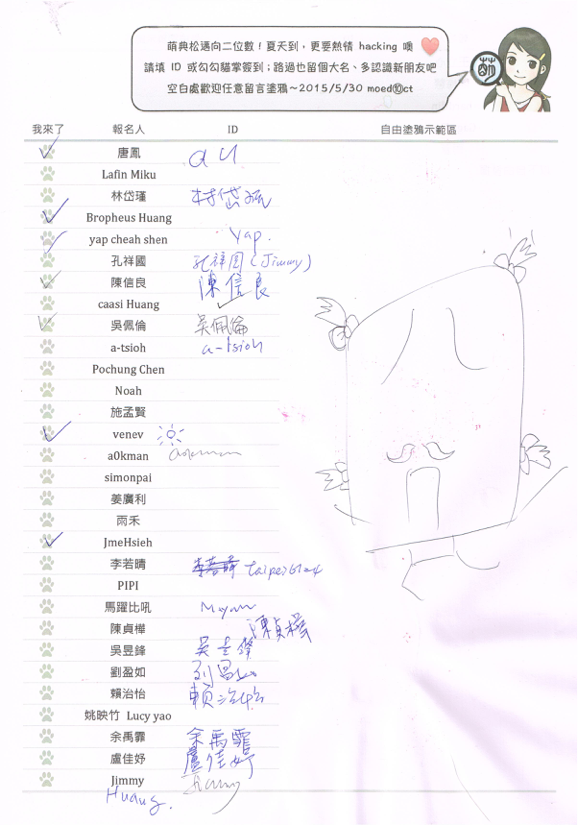 萌典松邁向二位數！夏天到，更要熱情 hacking 噢
請填 ID 或勾勾貓掌簽到；路過也留個大名、多認識新朋友吧
空白處歡迎任意留言塗鴉～2015/5/30 moed⑩ct
萌
我來了 報名人 ID 自由塗鴉示範區
唐鳳 au
Lafin Miku
林岱瑾 林岱瑾
Bropheus Huang
yap cheah shen yap.
孔祥國 孔祥國 (Jimmy)
陳信良 陳信良
caasi Huang
吳佩倫 吳佩倫
a-tsioh a-tsioh
Pochung Chen
Noah
施孟賢
venev
a0kman aokman
simonpai
姜廣利
雨禾
JmeHsieh
李若晴 taipei61204
PIPI
馬躍比吼 Mayaw
陳貞樺 陳貞樺
吳昱鋒
劉盈如
賴治怡 賴治怡
姚映竹 Lucy yao
余禹霏 余禹霏
盧佳妤 盧佳妤
Jimmy Jimmy
Huang.